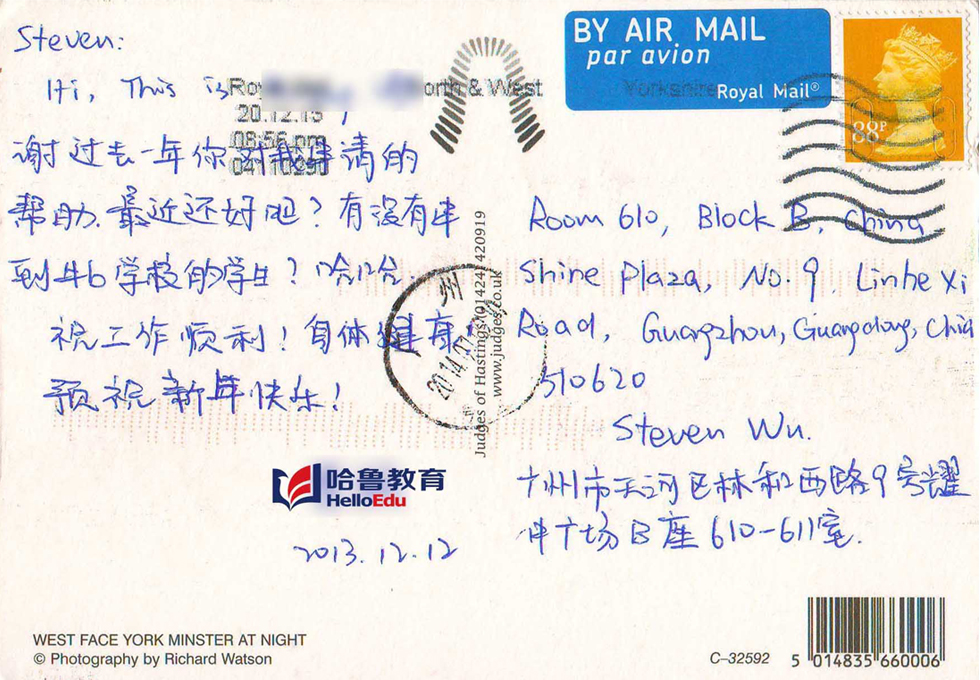 Steven:
Hi, This is
谢过去一年你对我申请的
帮助. 最近还好吧? 有没有串
到牛b学校的学生? 哈哈.
祝工作顺利! 身体健康!
预祝新年快乐!
2013.12.12
哈鲁教育
HelloEdu
WEST FACE YORK MINSTER AT NIGHT
© Photography by Richard Watson
orth & West
Yorkshire
20.12.13
08:56 pm
04110290
BY AIR MAIL
par avion
Royal Mail®
88P
Judges of Hastings (01424) 420919
www.judges.co.uk
州
Room 610, Block B, China
Shine Plaza, No.9. Linhe Xi
Road, Guangzhou, Guangdong, China
510620
Steven Wu.
广州市天河区林和西路9号耀
中广场B座610-611室.
C-32592
5 014835 660006